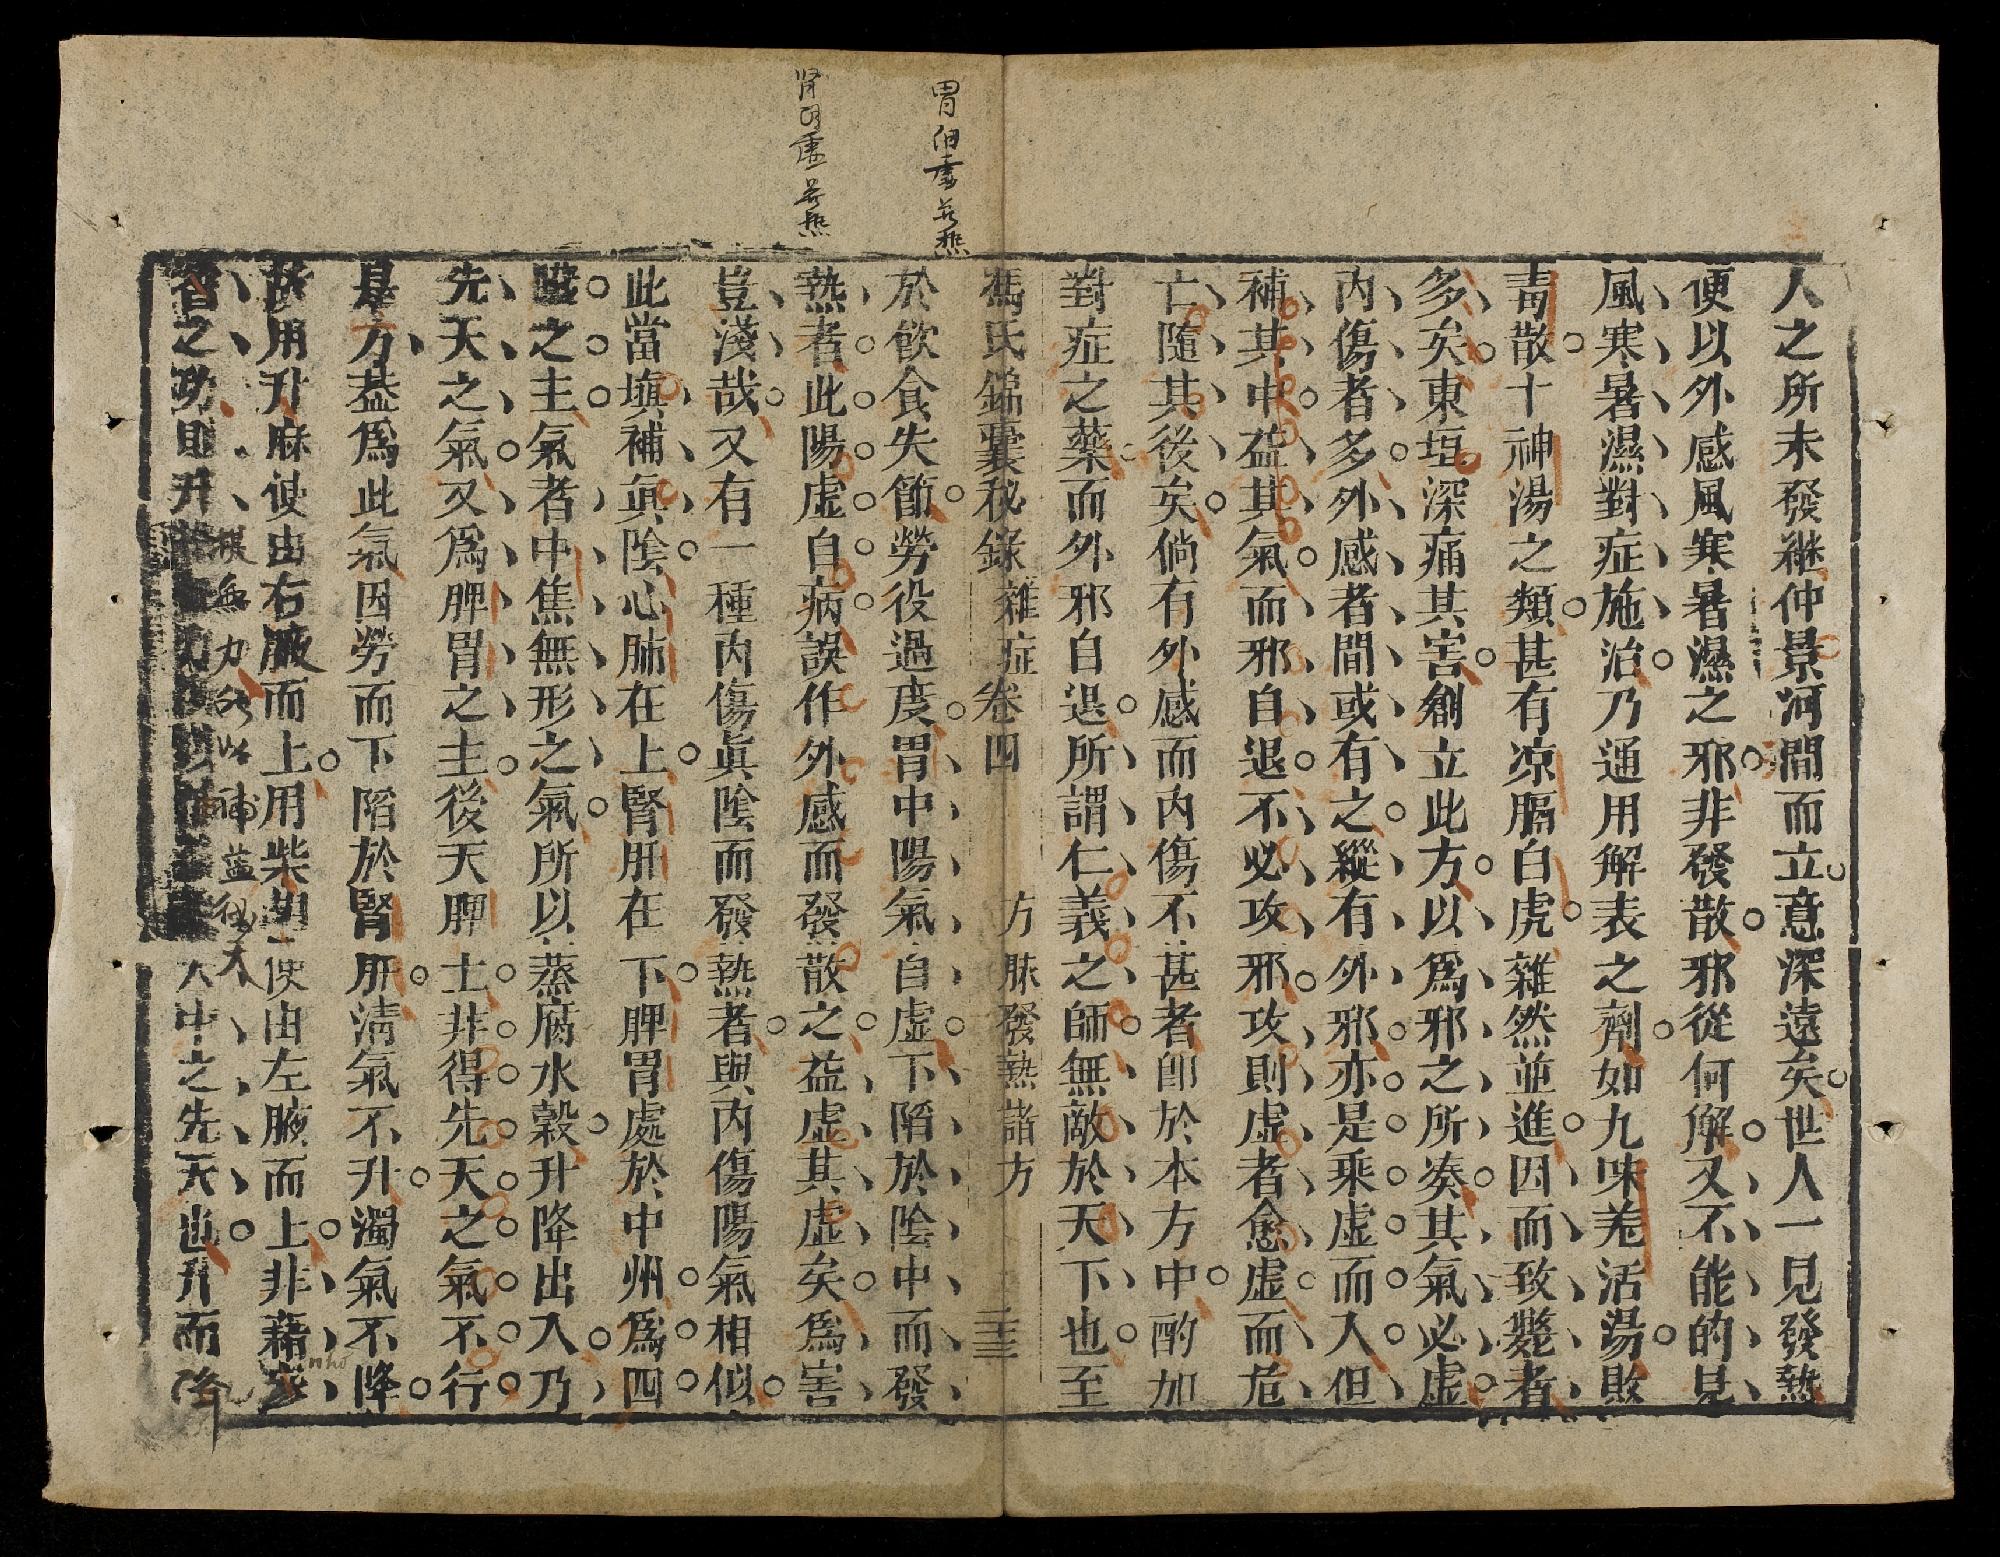 人之所未發繼仲景河間而立意深遠矣世人一見發熱
便以外感風寒暑濕之邪非發散邪從何解又不能的見
風寒暑濕對症施治乃通用解表之劑如九味羗活湯敗
毒散十神湯之類甚有凉膈白虎雜然並進因而致斃者
多矣東垣深痛其害創立此方以爲邪之所凑其氣必虛
內傷者多外感者間或有之縱有外邪亦是乘虛而入但
補其中益其氣而邪自退不必攻邪攻則虛者愈虛而危
亡隨其後矣倘有外感而內傷不甚者卽於本方中酌加
對症之藥而外邪自退所謂仁義之師無敵於天下也至
馮氏錦囊秘錄 雜症卷四 方脉發熱諸方 三三
胃 虛 熱
於飲食失節勞役過度胃中陽氣自虛下陷於陰中而發
熱者此陽虛自病誤作外感而發散之益虛其虛矣爲害
腎 虛 熱
豈淺哉又有一種內傷眞陰而發熱者與內傷陽氣相似
此當塡補眞陰心肺在上腎肝在下脾胃處於中州爲四
臟之主氣者中焦無形之氣所以蒸腐水穀升降出入乃
先天之氣又爲脾胃之主後天脾土非得先天之氣不行
是方葢爲此氣因勞而下陷於腎肝淸氣不升濁氣不降
故用升麻使由右腋而上用柴胡使由左腋而上非藉參
nhờ
無力 以補益後天
芪之功則升 人中之先天也升而降